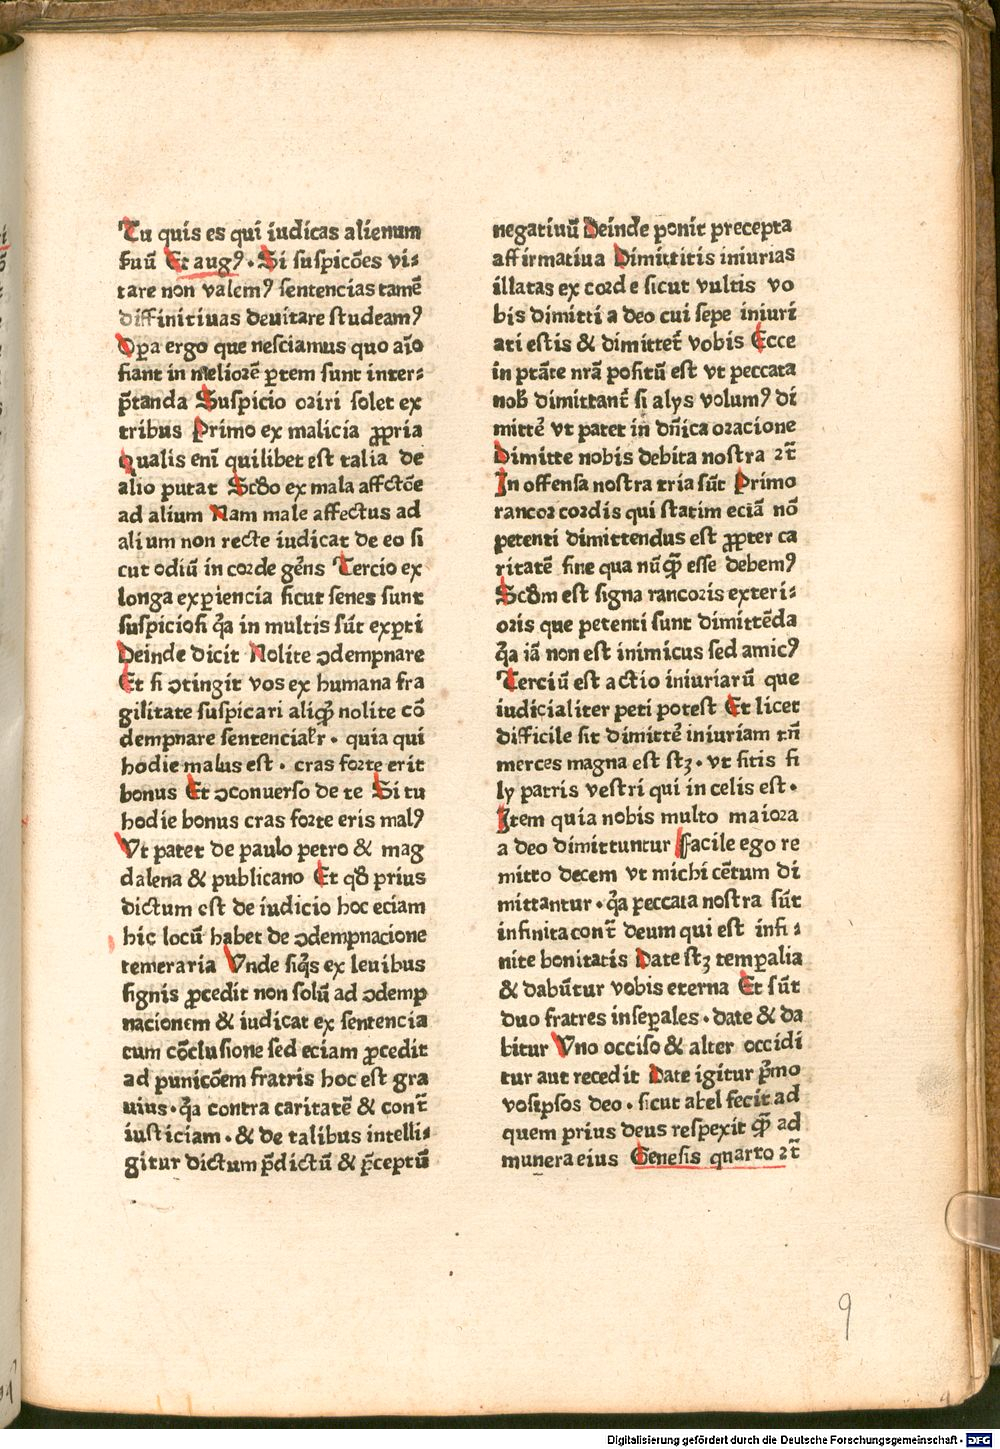 Tu quis es qui iudicas alienum
suū Et augꝰ. Si suspicōes vi⸗
tare non valemꝰ sentencias tamē
diffinitiuas deuitare studeamꝰ
Oꝑa ergo que nesciamus quo aīo
fiant in meliorē ꝑtem sunt inter⸗
p̄tanda Suspicio oriri solet ex
tribus Primo ex malicia ꝓpria
Qualis enī quilibet est talia de
alio putat Scďo ex mala affectōe
ad alium Nam male affectus ad
alium non recte iudicat de eo si
cut odiū in corde gēns Tercio ex
longa exꝑiencia sicut senes sunt
suspiciosi q̄a in multis sūt exꝑti
Deinde dicit Nolite ꝯdempnare
Et si ꝯtingit vos ex humana fra
gilitate suspicari aliqḡ nolite cō
dempnare sentencialr̄. quia qui
hodie malus est. cras forte erit
bonus Et ꝯconuerso de te Si tu
hodie bonus cras forte eris malꝰ
Vt patet de paulo petro & mag
dalena & publicano Et qďo prius
dictum est de iudicio hoc eciam
hic locū habet de ꝯdempnacione
temeraria Vnde siq̄s ex leuibus
signis ꝓcedit non solū ad ꝯdemp
nacionem & iudicat ex sentencia
cum cōclusione sed eciam ꝓcedit
ad punicōem fratris hoc est gra
uius. q̄a contra caritatē & cont̄
iusticiam. & de talibus intelli⸗
gitur dictum p̄dictū & p̄ceptū
negatiuū Deinde ponit precepta
affirmatiua Dimittitis iniurias
illatas ex corde sicut vultis vo
bis dimitti a deo cui sepe iniuri
ati estis & dimittet̄ vobis Ecce
in ptāte nrā positū est vt peccata
nob̄ dimittant̄ si alys volumꝰ di
mittē vt patet in dn̄ica oracione
Dimitte nobis debita nostra ⁊t̄
In offensa nostra tria sūt Primo
rancor cordis qui statim eciā nō
petenti dimittendus est ꝓpter ca
ritatē sine qua nūq̄ꝫ esse debemꝰ
Scďm est signa rancoris exteri⸗
oris que petenti sunt dimittēda
q̄a iā non est inimicus sed amicꝰ
Terciū est actio iniuriarū que
iudicialiter peti potest Et licet
difficile sit dimittē iniuriam tn̄
merces magna est stꝫ. vt sitis fi
ly patris vestri qui in celis est.
Item quia nobis multo maiora
a deo dimittuntur Facile ego re
mitto decem vt michi cētum di
mittantur. q̄a peccata nostra sūt
infinita cont̄ deum qui est infi⸗
nite bonitatis Date stꝫ temꝑalia
& dabūtur vobis eterna Et sūt
duo fratres inseꝑales. date & da
bitur Vno occiso & alter occidi
tur aut recedit Date igitur p̄mo
vosipsos deo. sicut abel fecit ad
quem prius deus respexit q̄ꝫ ad
munera eius Genesis quarto ⁊t̄
9
Digitalisierung gefördert durch die Deutsche Forschungsgemeinschaft - DFG